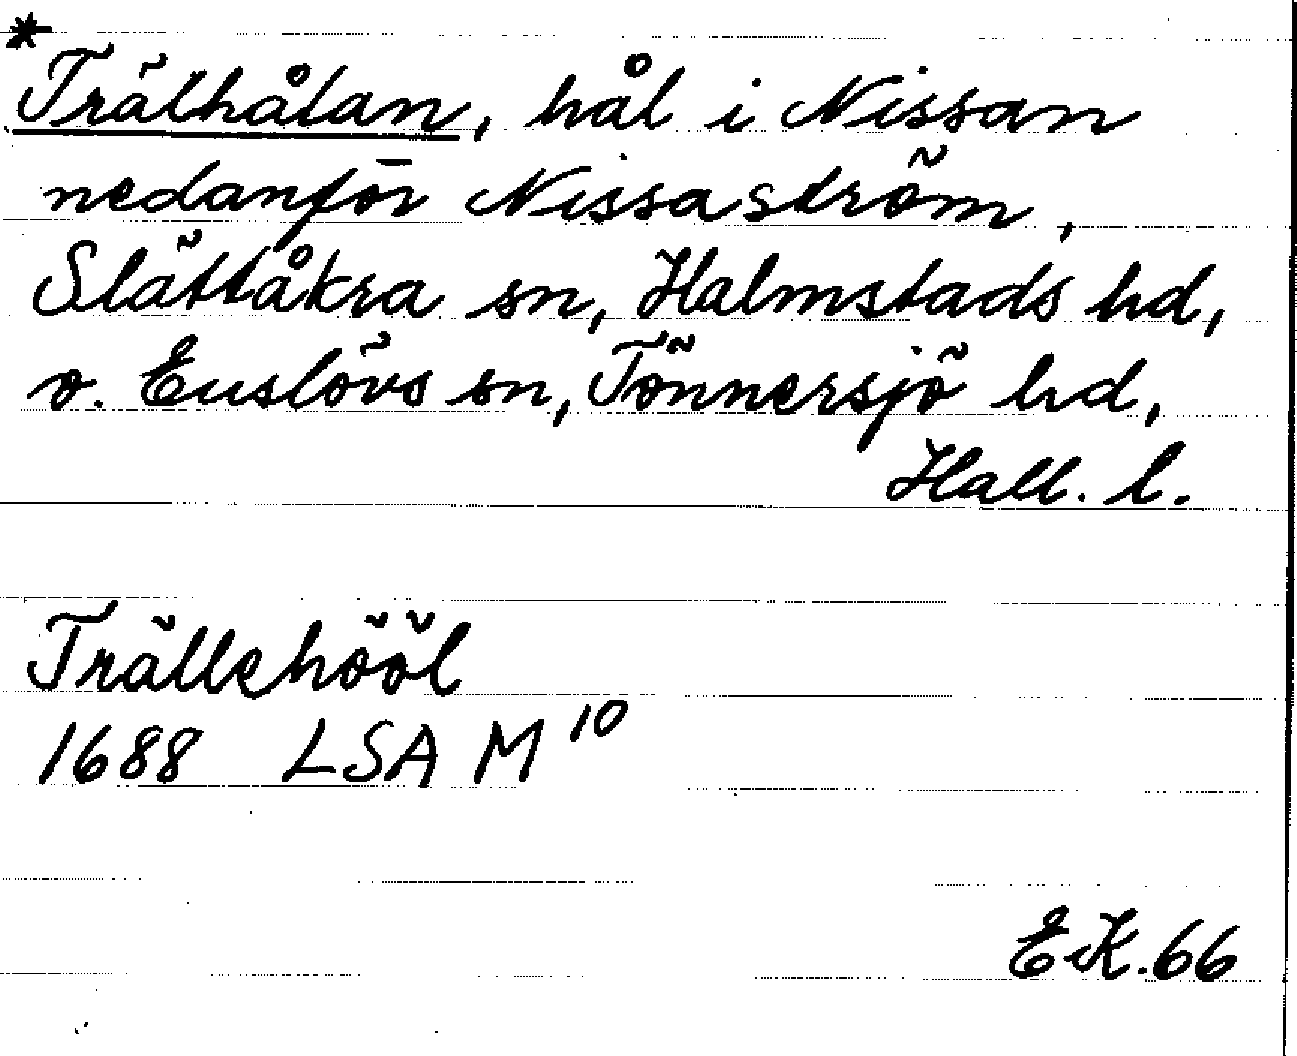 *
Trälhålan, hål i Nissan
nedanför Nissaström,
Slättåkra sn, Halmstads hd,
o. Enslövs sn, Tönnersjö hd,
Hall. l.
Trällehööl
1688 LSA M 10
EK.66